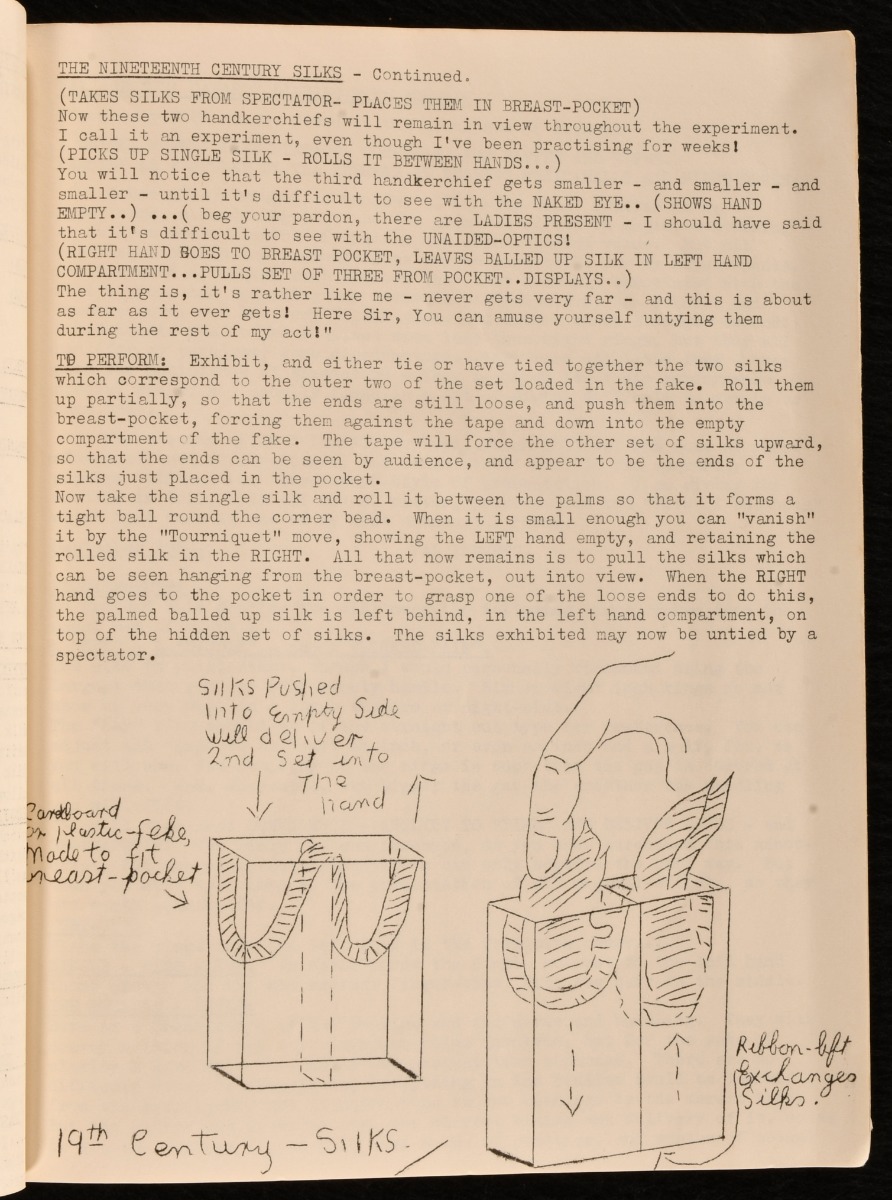 THE NINETEENTH CENTURY SILKS - Continued.
(TAKES SILKS FROM SPECTATOR- PLACES THEM IN BREAST-POCKET)
Now these two handkerchiefs will remain in view throughout the experiment.
I call it an experiment, even though I've been practising for weeks!
(PICKS UP SINGLE SILK - ROLLS IT BETWEEN HANDS...)
You will notice that the third handkerchief gets smaller - and smaller - and
smaller - until it's difficult to see with the NAKED EYE.. (SHOWS HAND
EMPTY..) ...( beg your pardon, there are LADIES PRESENT - I should have said
that it's difficult to see with the UNAIDED-OPTICS!
(RIGHT HAND GOES TO BREAST POCKET, LEAVES BALLED UP SILK IN LEFT HAND
COMPARTMENT...PULLS SET OF THREE FROM POCKET..DISPLAYS..)
The thing is, it's rather like me - never gets very far - and this is about
as far as it ever gets!  Here Sir, You can amuse yourself untying them
during the rest of my act!"
TO PERFORM:  Exhibit, and either tie or have tied together the two silks
which correspond to the outer two of the set loaded in the fake.  Roll them
up partially, so that the ends are still loose, and push them into the
breast-pocket, forcing them against the tape and down into the empty
compartment of the fake.  The tape will force the other set of silks upward,
so that the ends can be seen by audience, and appear to be the ends of the
silks just placed in the pocket.
Now take the single silk and roll it between the palms so that it forms a
tight ball round the corner bead.  When it is small enough you can "vanish"
it by the "Tourniquet" move, showing the LEFT hand empty, and retaining the
rolled silk in the RIGHT.  All that now remains is to pull the silks which
can be seen hanging from the breast-pocket, out into view.  When the RIGHT
hand goes to the pocket in order to grasp one of the loose ends to do this,
the palmed balled up silk is left behind, in the left hand compartment, on
top of the hidden set of silks.  The silks exhibited may now be untied by a
spectator.
Silks Pushed
Into Empty Side
Will deliver
2nd Set into
The
hand
Cardboard
or plastic-feke,
Made to fit
breast-pocket
Ribbon-left
Exchanges
Silks.
19th Century - Silks.